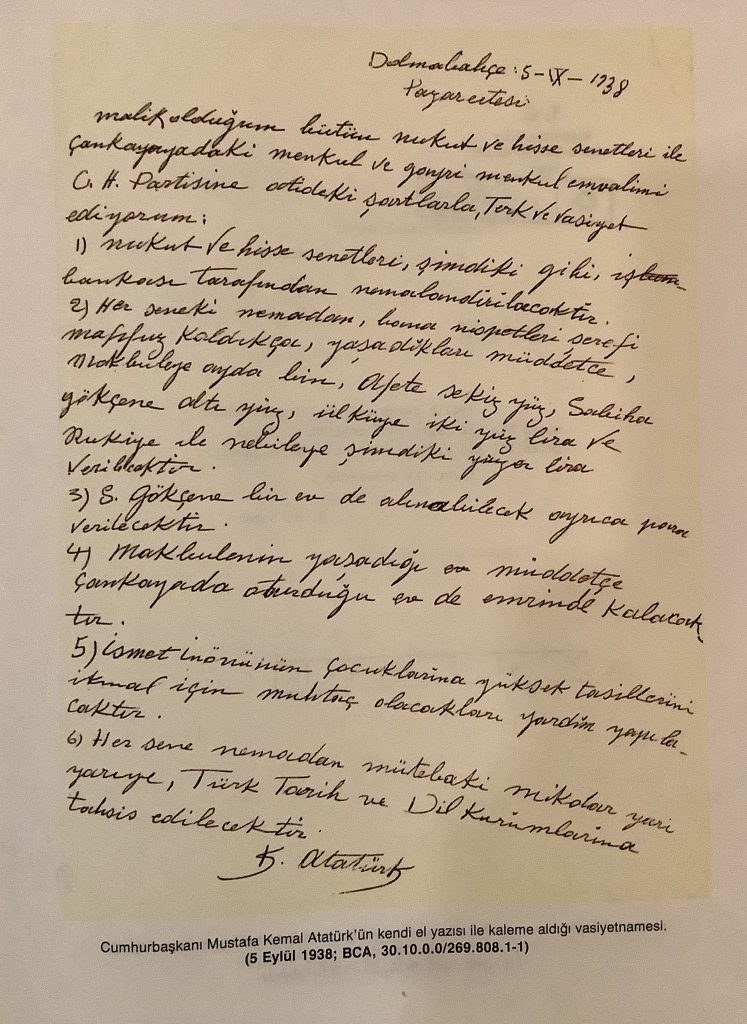 Dolmabahçe: 5-IX-1938
Pazarertesi
malik olduğum bütün nukut ve hisse senetleri ile
Çankayadaki menkul ve gayri menkul emvalimi
C. H. Partisine atideki şartlarla, Terk ve vasiyet
ediyorum:
1) nukut ve hisse senetleri, şimdiki gibi, iş
bankası tarafından nemalandırılacaktır.
2) Her seneki nemadan, bana nispetleri şerefi
mahfuz kaldıkça, yaşadıkları müddetce,
Makbuleye ayda bin, Afete sekiz yüz, Sabiha
gökçene altı yüz, ülküye iki yüz lira ve
Rukiye ile nebileye şimdiki yüzer lira
verilecektir.
3) S. Gökçene bir ev de alınabilecek ayrıca para
verilecektir.
4) Makbulenin yaşadığı müddetçe
Çankayada oturduğu ev de emrinde kalacak
tır.
5) ismet inönünün çocuklarına yüksek tasillerini
ikmal için muhtaç olacakları yardım yapıla-
caktır.
6) Her sene nemadan mütebaki mikdar yarı
yarıya, Türk Tarih ve Dil Kurumlarına
tahsis edilecektir.
K. Atatürk
Cumhurbaşkanı Mustafa Kemal Atatürk'ün kendi el yazısı ile kaleme aldığı vasiyetnamesi.
(5 Eylül 1938; BCA, 30.10.0.0/269.808.1-1)